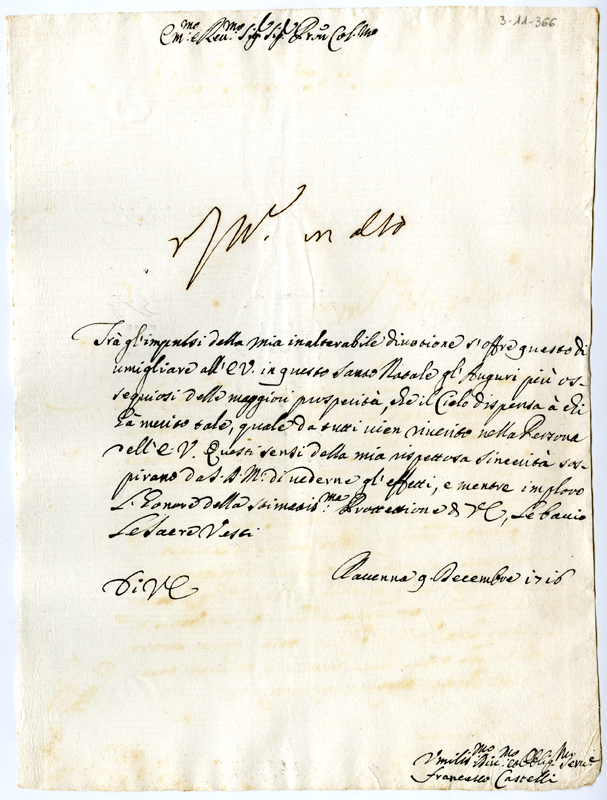 3-11-366
Em.mo e Reu.mo Sig.r Sig.r Pron Col.mo
in alto
Trà gl'impulsi della mia inalterabile diuotione s'offre questo di
umigliare all'E.V. in questo Santo Natale gl'Auguri più os-
sequiosi delle maggiori prosperità, che il Cielo dispensa à chi
hà merito tale, quale da tutti uien riuerito nella Persona
dell'E.V. Questi sensi della mia rispettosa sincerità sos-
pirano da S.D.M. di uederne gl'effetti, e mentre imploro
l'honore della stimatis.ma Protettione di VE, Le bacio
Le Sacre Vesti
Di VE
Rauenna 9 Decembre 1716
Vmilis.mo Diu.mo et Oblig.mo Seru.e
Francesco Castelli